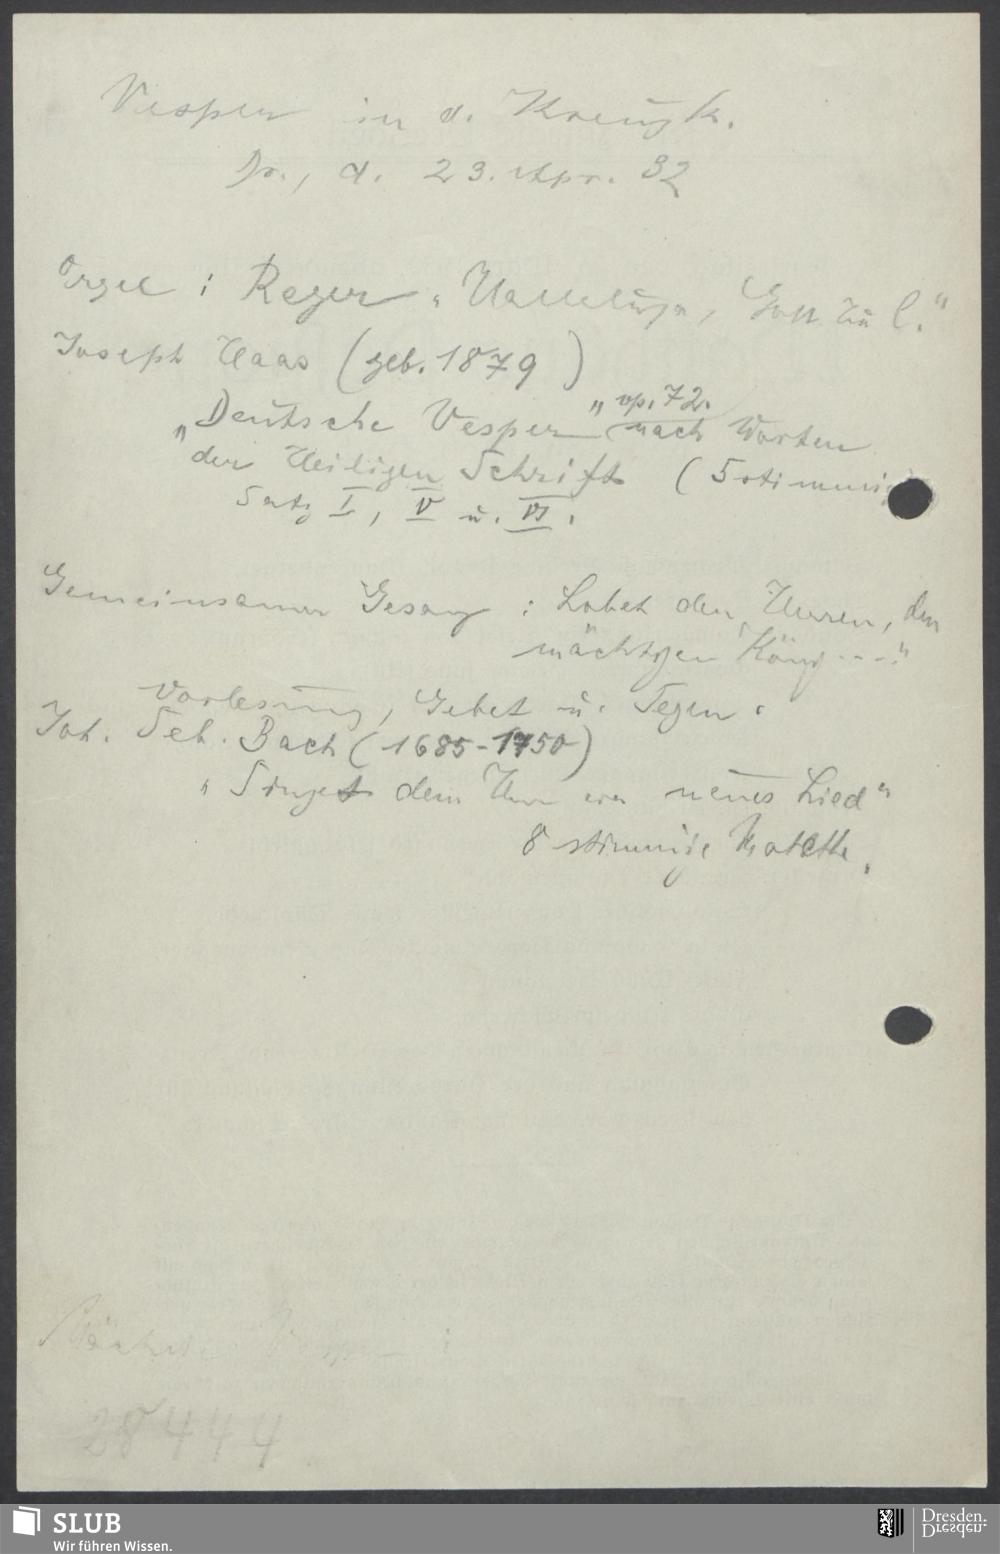 Vesper in d. Kreuzk.
Dr., d. 23. Apr. 32
Orgel: Reger "Halleluja, Gott zu l."
Joseph Haas (geb. 1879)
"Deutsche Vesper" op. 72. nach Worten
der Heiligen Schrift (5stimmig
Satz I, V u. VI.
Gemeinsamer Gesang: Lobet den Herren, den
mächtigen König ---"
Vorlesung, Gebet u. Segen.
Joh. Seb. Bach (1685-1750)
"Singet dem Herrn ein neues Lied"
8 stimmige Motette.
Nächste Vesper:
28444
SLUB
Wir führen Wissen.
Dresden.
Dresden.